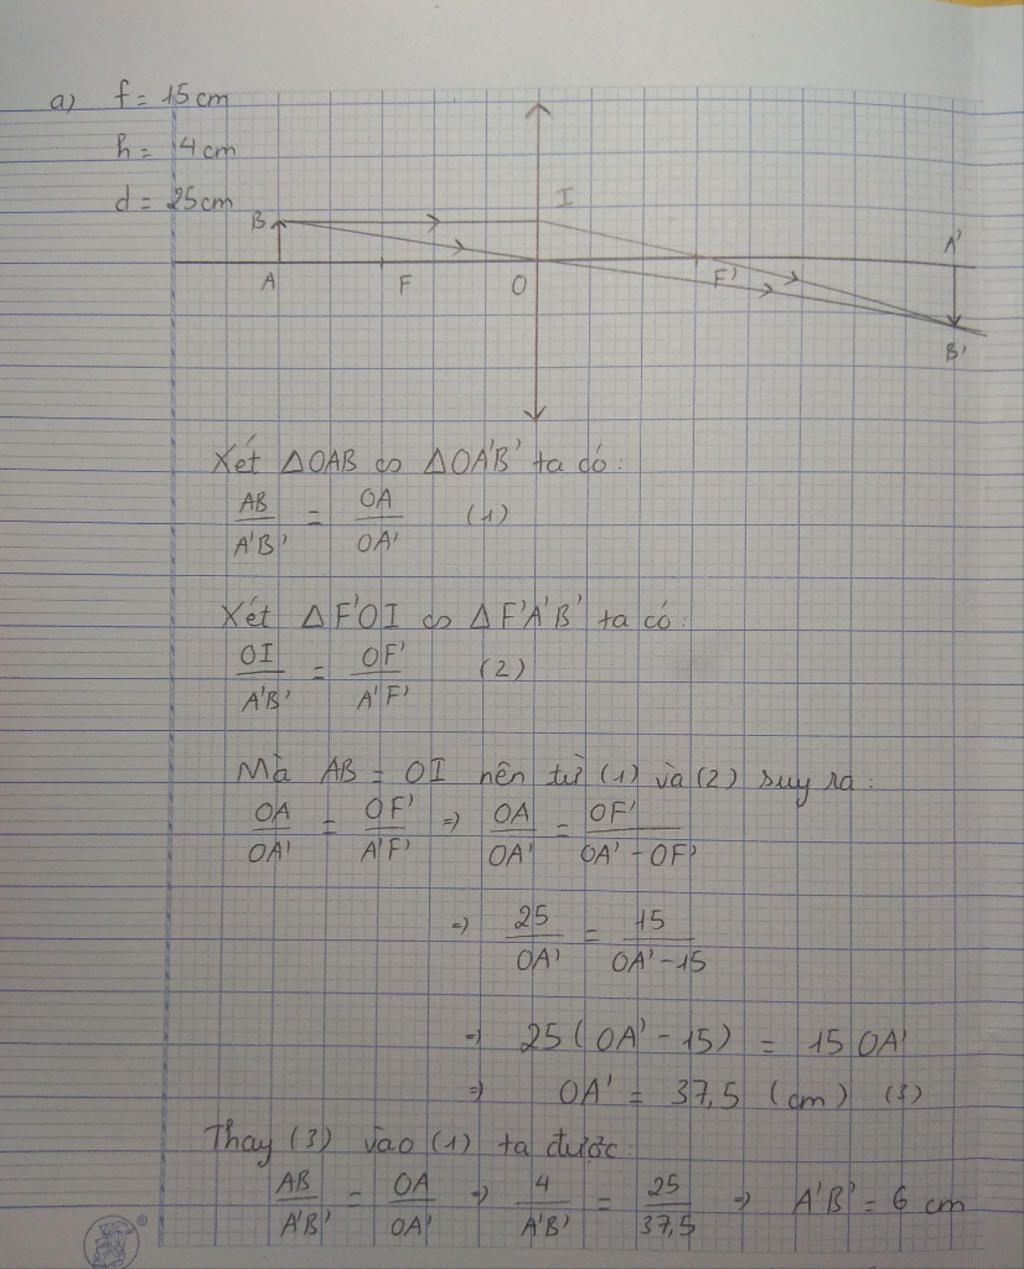 a) f = 15 cm
h = 4 cm
d = 25 cm
B I A'
A F O F' B'
Xét ΔOAB ∽ ΔOA'B' ta có:
AB/A'B' = OA/OA' (1)
Xét ΔF'OI ∽ ΔF'A'B' ta có:
OI/A'B' = OF'/A'F' (2)
Mà AB = OI nên từ (1) và (2) suy ra:
OA/OA' = OF'/A'F' => OA/OA' = OF'/OA' - OF'
=> 25/OA' = 15/OA' - 15
=> 25(OA' - 15) = 15 OA'
=> OA' = 37,5 (cm) (3)
Thay (3) vào (1) ta được:
AB/A'B' = OA/OA' => 4/A'B' = 25/37,5 => A'B' = 6 cm
®